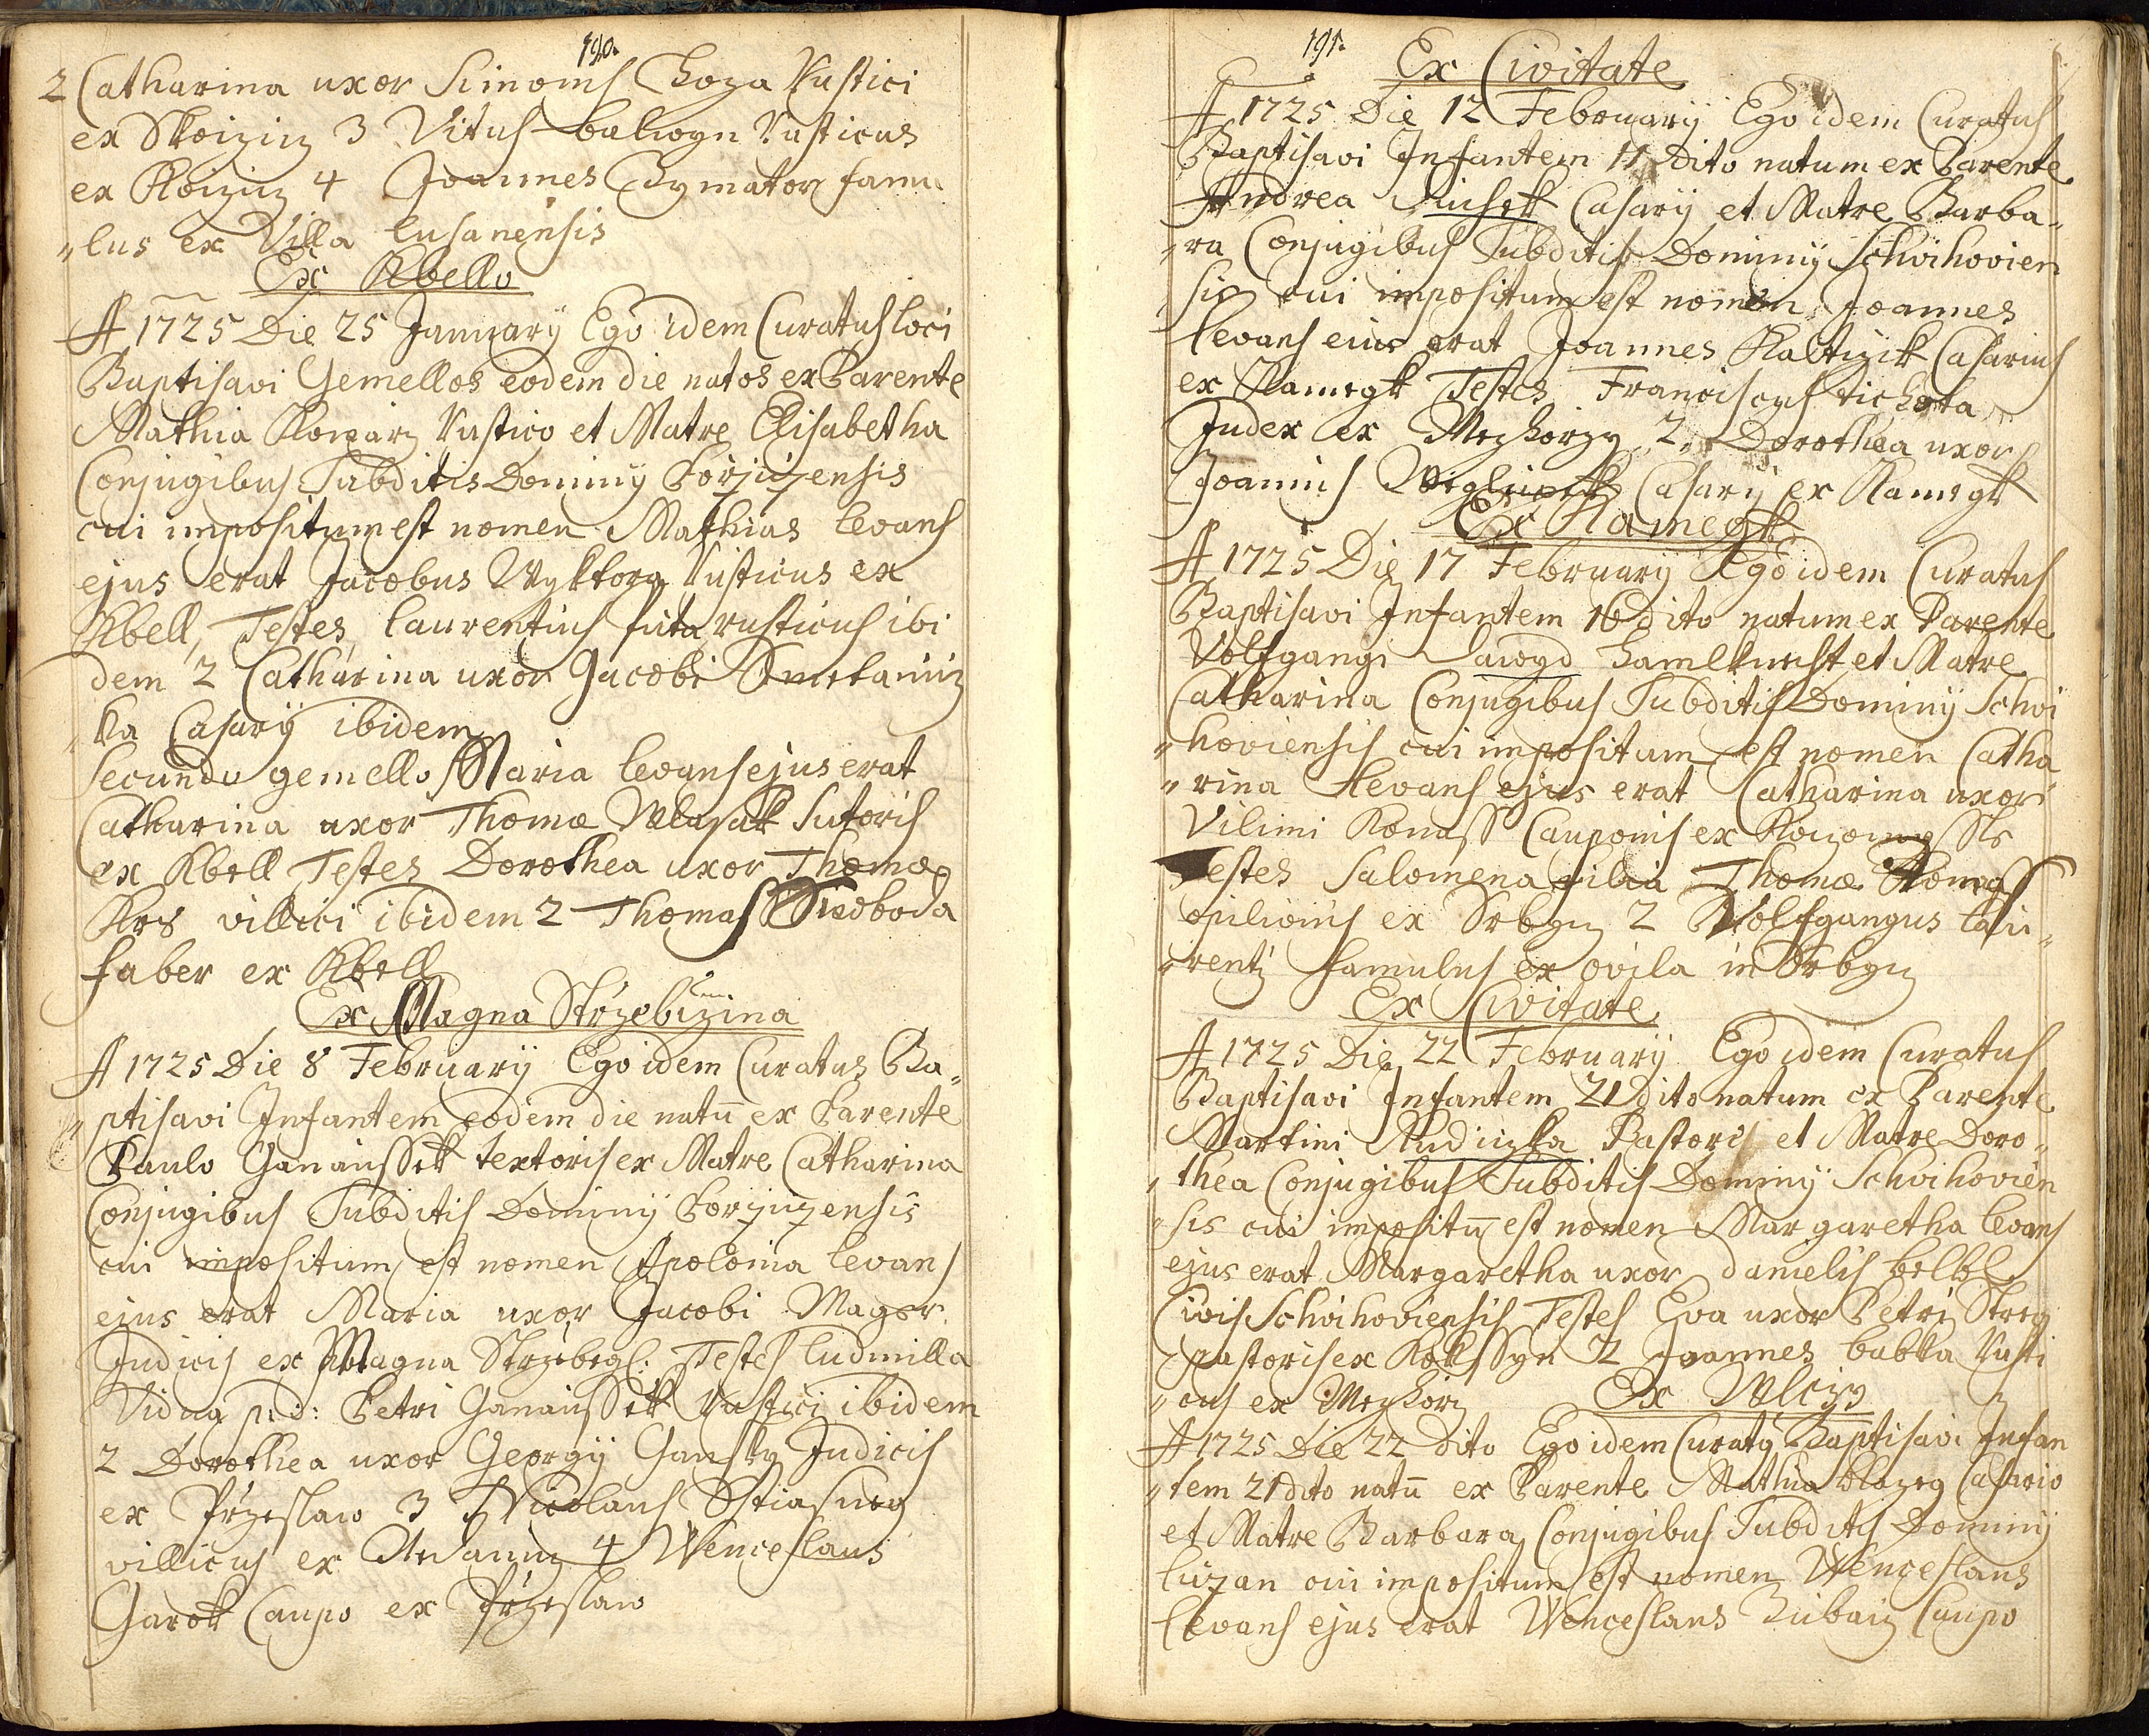 190.
2 Catharina uxor Simonis Choza Rustici
ex Skoizitz 3 Vitus balwyn Rusticus
ex Kloizitz 4 Joannes Chymator famu
„lus ex Villa lusanensis
Ex Kbello
A 1725 Die 25 January Ego idem Curatus loci
Baptisavi Gemellos eodem die natos ex Parente
Mathia Konarz Rustico et Matre Elisabetha
Conjugibus Subditis Dominÿ Porzizensis
cui impositum est nomen Mathias levans
ejus erat Jacobus Wyktora Rusticus ex
Kbell, Testes laurentius futa rusticus ibi
dem 2 Catharina uxor Jacobi Smetaniz
„ka Casarÿ ibidem
Secundo gemello Maria levans ejus erat
Catharina uxor Thomæ Wlasak Sutoris
ex Kbell Testes Dorothea uxor Thomæ
Krs villici ibidem 2 Thomas Swoboda
faber ex Kbell
Ex Magna Strzebizina
A 1725 Die 8 Februarÿ Ego idem Curatus Ba„
„ptisavi Infantem eodem die natū ex Parente
Paulo Ganaussek textoris ex Matre Catharina
Conjugibus Subditis Dominÿ Porzizensis
cui impositum est nomen Apolonia levans
ejus erat Maria uxor Jacobi Mager
Judicis ex Magna Strzebizl: Testes ludmilla
Vidua p: d: Petri Ganaussek Rustici ibidem
2 Dorothea uxor Georgÿ Gansky Judicis
ex Przeslaw 3 Nicolaus Stiasneg
villicus ex 4 Wenceslaus
Garok Caupo ex Przeslaw
191.
Ex Civitate
A 1725 Die 12 Februarÿ Ego idem Curatus
Baptisavi Infantem 11 dito natum ex Parente
Andrea Casarÿ et Matre Barba„
„ra Conjugibus Subditis Dominÿ Schvihovien
sis cui impositum est nomen Joannes
levans eius erat Joannes Kaltizik Casarius
ex Kamegk Testes Franciscus tichota
Judex ex Mezhorzy 2 Dorothea uxor
Joannis Casarÿ ex Kamegk
Ex Kamegk
A 1725 Die 17 Februarÿ Ego idem Curatus
Baptisavi Infantem 16 dito natum ex Parente
Volfgangi Lawyd hamlknecht et Matre
Catharina Conjugibus Subditis Dominÿ Schvi
„hoviensis cui impositum est nomen Catha
„rina levans ejus erat Catharina uxor
Vilimi Konass Cauponis ex
Testes Salomena filia Thomæ
opilionis ex Srbyz 2 Wolfgangus lau„
„rentj famulus ex ovila in Srbyz
Ex Civitate
A 1725 Die 22 Februarÿ Ego idem Curatus
Baptisavi Infantem 21 dito natum ex Parente
Martini Rudizka Pastoris et Matre Doro„
„thea Conjugibus Subditis Dominÿ Schvihovien
„sis cui impositū est nomen Margaretha levans
ejus erat Margaretha uxor danielis belbl
Civis Schvihoviensis Testes Eva uxor Petri Streg
pastoris ex Rokssyn 2 Joannes babka Rusti
„cus ex Mezhorz
Ex Wlczy
A 1725 Die 22 dito Ego idem Curatꝰ Baptisavi Infan
„tem 21 dito natū ex Parente Mathia blazeg Casario
et Matre Barbara Conjugibus Subditis Dominÿ
luzan cui impositum est nomen Wenceslaus
levans ejus erat Wenceslaus Caupo